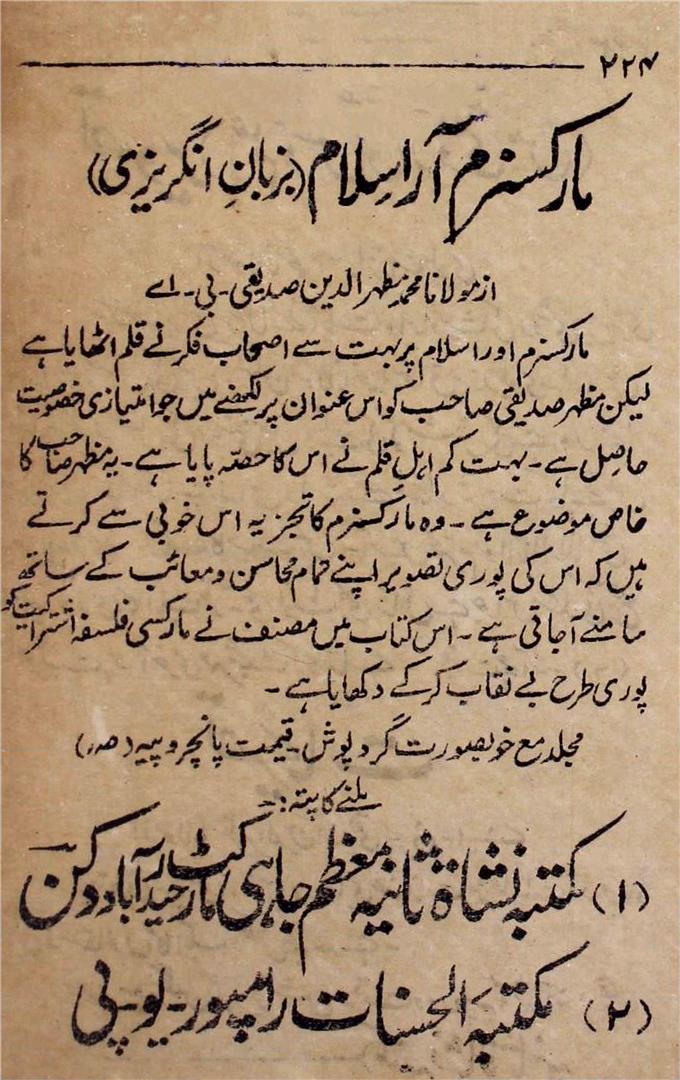 ۲۲۴
مارکسزم آر اسلام (بزبانِ انگریزی)
از مولانا محمد مظہر الدین صدیقی۔ بی۔ اے
مارکسزم اور اسلام پر بہت سے اصحاب فکر نے قلم اٹھایا ہے
لیکن مظہر صدیقی صاحب کو اس عنوان پر لکھنے میں جو امتیازی خصوصیت
حاصل ہے۔ بہت کم اہل قلم نے اس کا حصہ پایا ہے۔ یہ مظہر صاحب کا
خاص موضوع ہے۔ وہ مارکسزم کا تجزیہ اس خوبی سے کرتے
ہیں کہ اس کی پوری تصویر اپنے تمام محاسن و معائب کے ساتھ
سامنے آجاتی ہے۔ اس کتاب میں مصنف نے مارکسی فلسفہ اشتراکیت کو
پوری طرح بے نقاب کرکے دکھایا ہے۔
مجلد مع خوبصورت گرد پوش۔ قیمت پانچروپیہ (صہ)
ملنے کا پتہ:۔
(۱) مکتبہ نشاۃ ثانیہ معظم جاہی مارکٹ حیدرآباد دکن
(۲) مکتبہ الحسنات رامپور۔ یو۔ پی